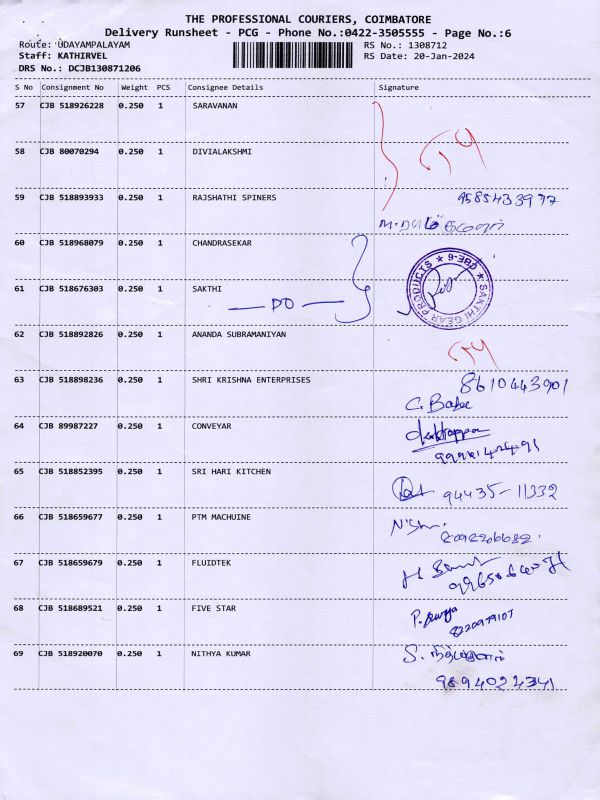 THE PROFESSIONAL COURIERS, COIMBATORE
Delivery Runsheet - PCG - Phone No.:0422-3505555 - Page No.:6
Route: UDAYAMPALAYAM RS No.: 1308712
Staff: KATHIRVEL RS Date: 20-Jan-2024
DRS No.: DCJB130871206
S No Consignment No Weight PCS Consignee Details Signature
57 CJB 518926228 0.250 1 SARAVANAN
58 CJB 80070294 0.250 1 DIVIALAKSHMI
59 CJB 518893933 0.250 1 RAJSHATHI SPINERS 9585433977
60 CJB 518968079 0.250 1 CHANDRASEKAR
61 CJB 518676303 0.250 1 SAKTHI
DO
SAKTHI GEAR PRODUCTS
62 CJB 518892826 0.250 1 ANANDA SUBRAMANIYAN
63 CJB 518898236 0.250 1 SHRI KRISHNA ENTERPRISES 8610443901
64 CJB 89987227 0.250 1 CONVEYAR
65 CJB 518852395 0.250 1 SRI HARI KITCHEN 94435-11332
66 CJB 518659677 0.250 1 PTM MACHUINE
67 CJB 518659679 0.250 1 FLUIDTEK
68 CJB 518689521 0.250 1 FIVE STAR P. Surya
8220979107
69 CJB 518920070 0.250 1 NITHYA KUMAR
9894022341